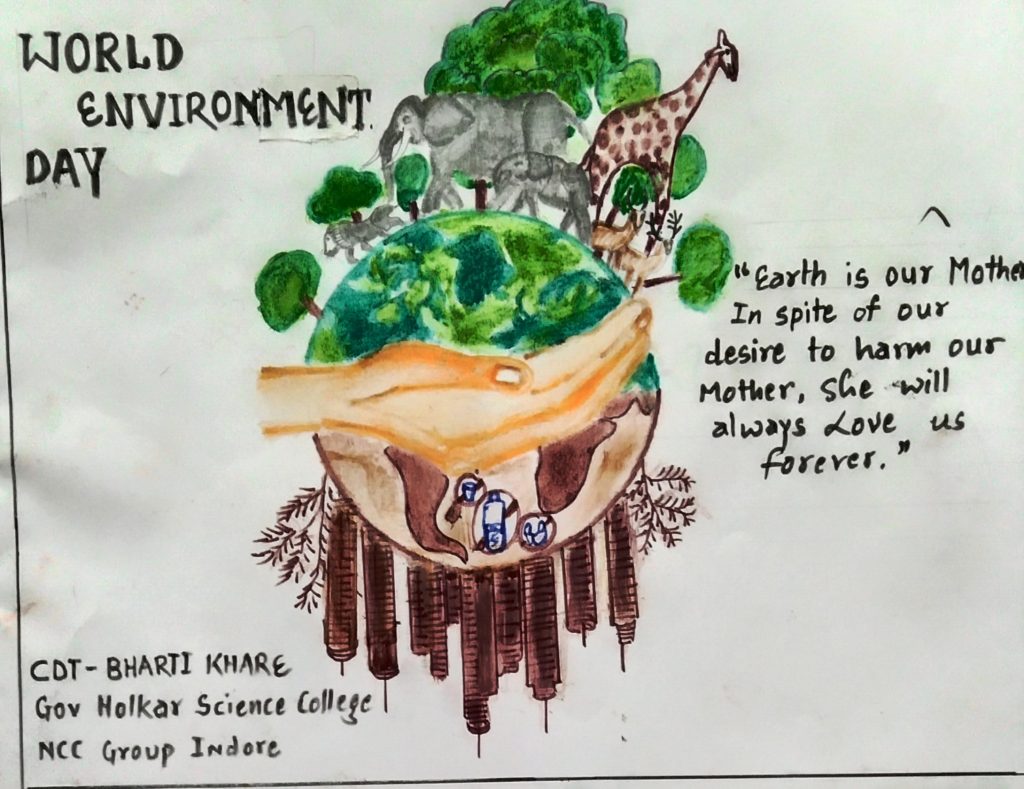 WORLD
ENVIRONMENT
DAY
"Earth is our Mother
In spite of our
desire to harm our
Mother, She will
always Love us
forever."
CDT - BHARTI KHARE
Gov Holkar Science College
NCC Group Indore